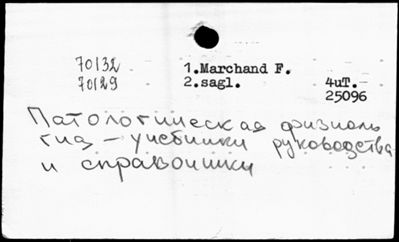 70132
1.Marchand F.
70129
2.sagl.
4uT.
25096
Патологическая физиоль
гия – учебники руководства
и справочники